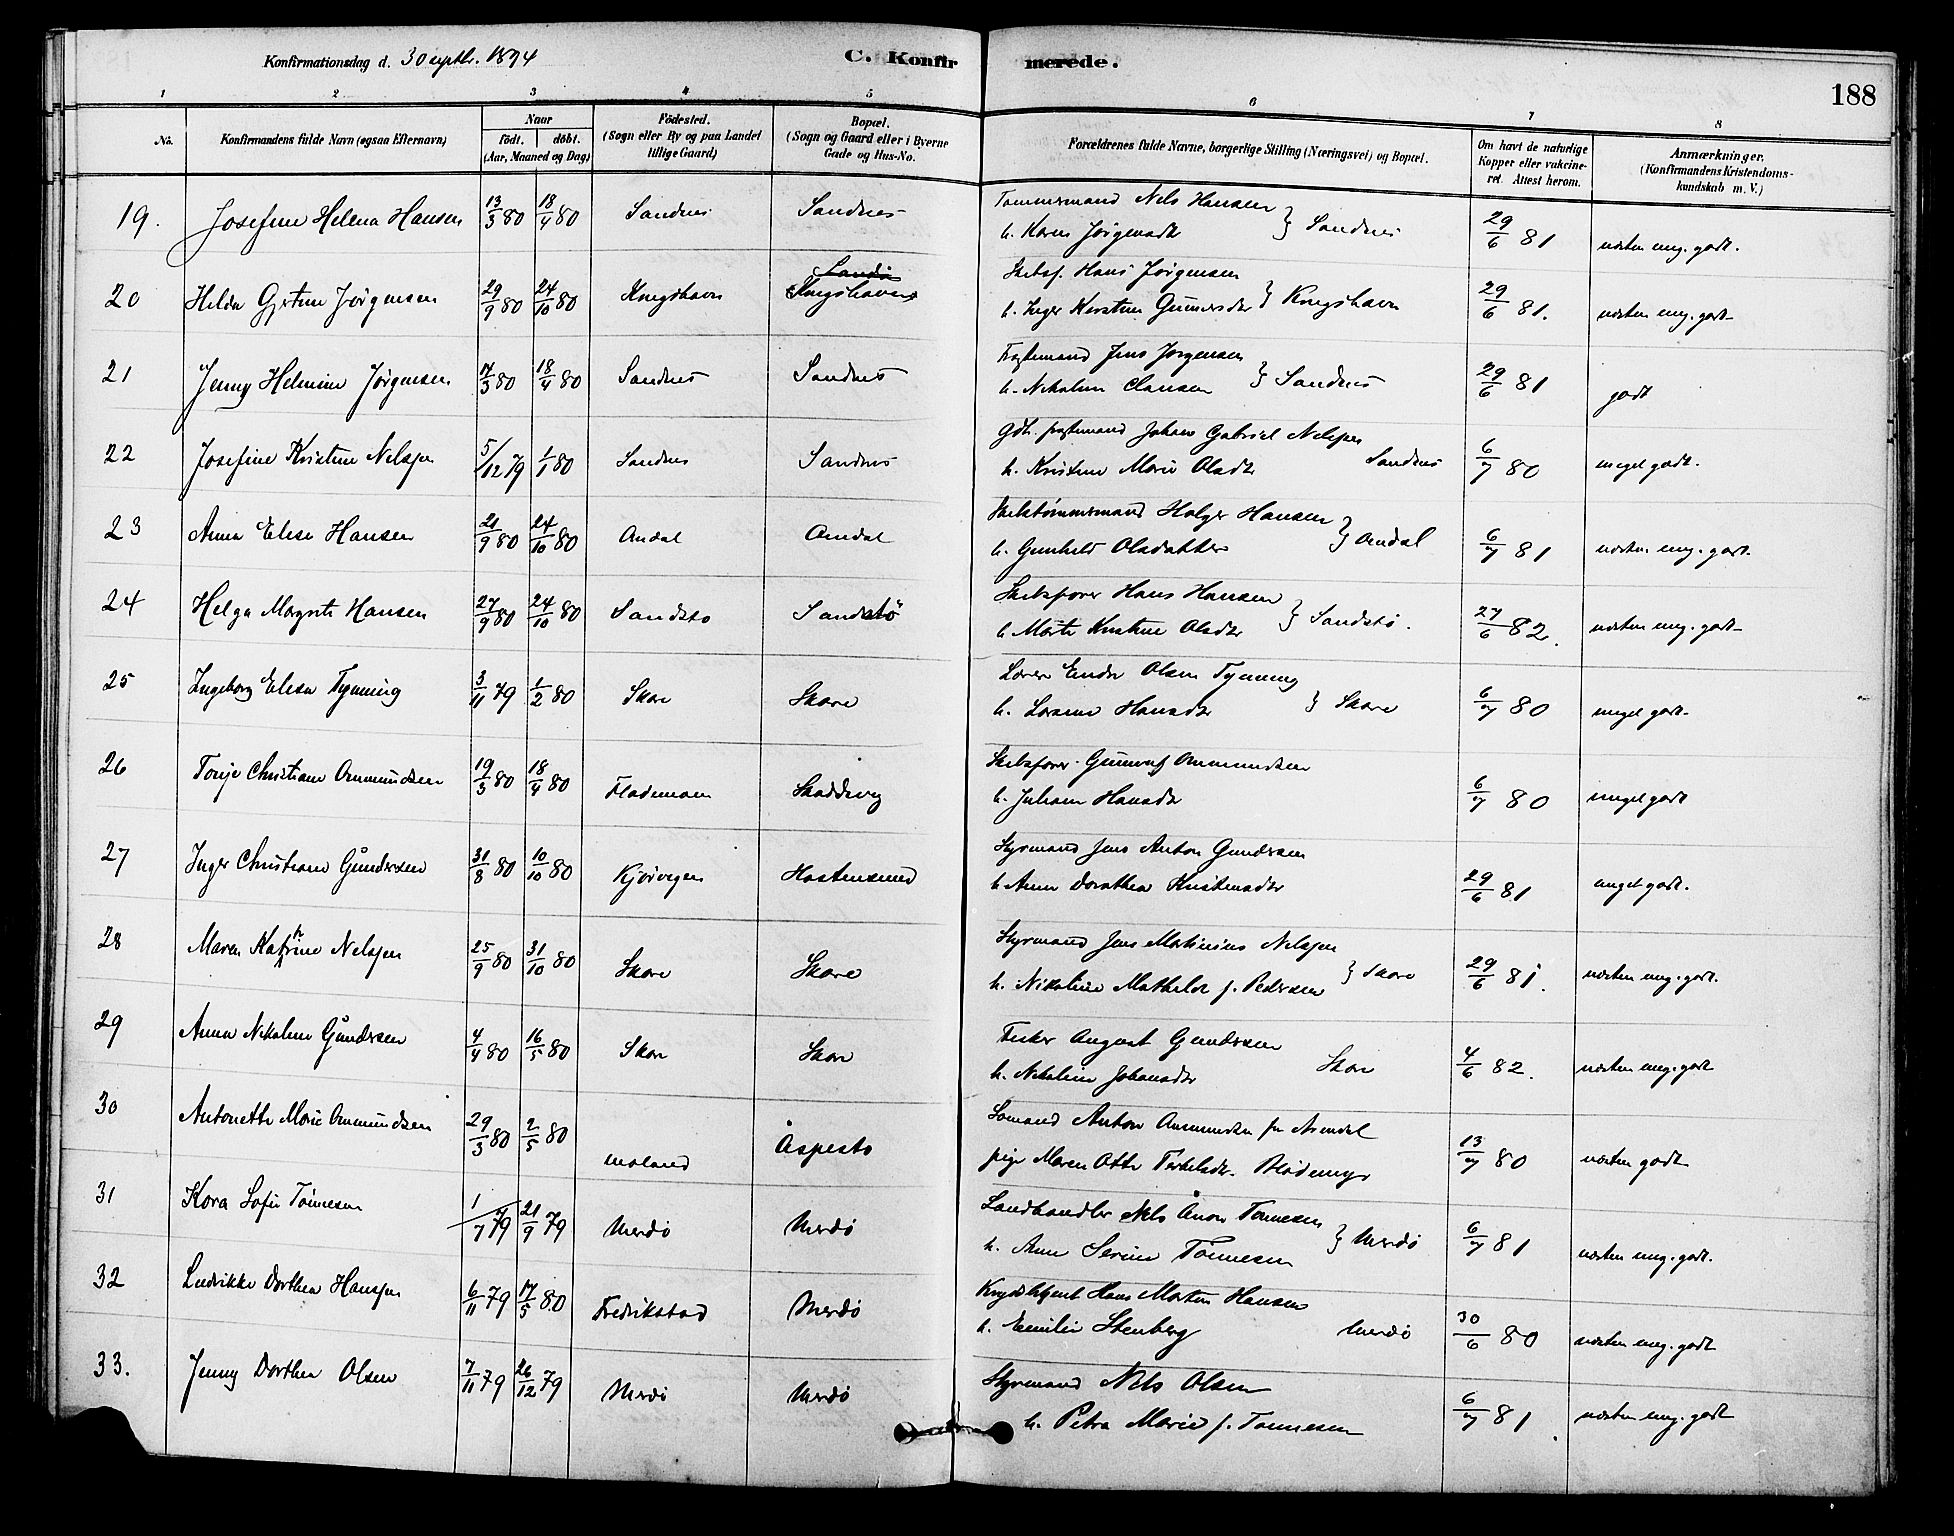 Konfirmationsdag d. 30 septbr. 1894
C. Konfirmerede.
188
1 2 3 4 5 6 7 8
No.
Konfirmandens fulde Navn (ogsaa Efternavn)
Naar
født. døbt.
(Aar, Maaned og Dag)
Födested.
(Sogn eller By og paa Landet
tillige Gaard)
Bopæl.
(Sogn og Gaard eller i Byerne
Gade og Hus-No.
Forældrenes fulde Navne, borgerlige Stilling (Næringsvei) og Bopæl.
Om havt de naturlige
Kopper eller vakcine-
ret. Attest herom.
Anmærkninger.
(Konfirmandens Kristendoms-
kundskab m. V.)
19. Josefine Helena Hansen 13/3 80 18/4 80 Sandnes Sandnes Tømmermand Nels Hansen
h. Karen Jørgensdtr } Sandnes 29/6 81 næsten meg. godt.
20 Helda Gjrtine Jørgensen 29/9 80 24/10 80 Kongshavn Kongshavn Skibsf. Hans Jørgensen
h. Inger Kirstine Gunnersdtr } Kongshavn 29/6 81. næsten meg. godt
21 Jenny Helmine Jørgensen 14/3 80 18/4 80 Sandnes Sandnes Fragtemand Jens Jorgensen
h. Nikoline Clausen } Sandnes 29/6 81 godt
22 Josefine Kristine Nelsen 5/12 79 1/1 80 Sandnes Sandnes Gdb. fragtemand Johan Gabriel Nelsen
h. Kristine Marie Olsdtr Sandnes 6/7 80 meget godt.
23 Anna Elise Hansen 21/9 80 24/10 80 Omdal Omdal Skibstømmermand Holger Hansen
h. Gunhild Olsdatter } Omdal 6/7 81 næsten meg. godt.
24 Helga Magrete Hansen 27/9 80 24/10 80 Sandsto Sandstø Skibsfører Hans Hansen
h Marte Kristine Olsdtr } Sandstø. 27/6 82. næsten meg. godt
25 Ingeborg Elisa Tynning 3/11 79 1/2 80 Skare Skare Lærer Ender Olsen Tynning
h. Lovise Hansdtr } Skare 6/7 80 meget godt.
26 Tonje Christiane Ommundsen 19/3 80 18/4 80 Flademoen Skaddevig Skibsfører Gunnuf Ommundsen
h. Juliane Hansdtr 6/7 80 meget godt
27 Inger Christiane Gundersen 31/8 80 10/10 80 Kjørvegen Hastensund Styrmand Jens Anton Gundersen
h Anne Dorothea Kristensdtr 29/6 81 meget godt.
28 Maren Kathrine Nelsen 25/9 80 31/10 80 Skare Skare Styrmand Jens Martinius Nelsen
h. Nikoline Mathilde f. Pedersen } Skare 29/6 81. næsten meg. godt.
29 Anna Nikoline Gundersen 4/4 80 16/5 80 Skare Skare Fisker August Gundersen
h. Nikoline Johansdtr Skare 4/6 82. næsten meg. godt
30 Antonette Marie Ommundsen 29/3 80 2/5 80 moland Aspesto Sømand Anton Ommundsen fra Arendal
pige Maren Otte Terkelsdtr. Blødemyr 13/7 80 næsten godt
31 Kora Sofie Tønnesen 1/7 79 21/9 79 Merdø Merdø Landhandler Nels Anon Tønnesen
h. Anne Serine Tønnesen } Merdø 6/7 81 næsten meg. godt.
32 Ludvikke Dorthea Hansen 6/11 79 17/5 80 Fredrikstad Merdø Hans Morten Hansen
h. Emilie Stenberg Merdø 30/6 80 næsten meg. godt
33. Jenny Dorthea Olsen 7/11 79 26/12 79 Merdø Merdø Styrmand Nels Olsen
h. Petra Marie f. Tønnesen 6/7 81. næsten meg. godt